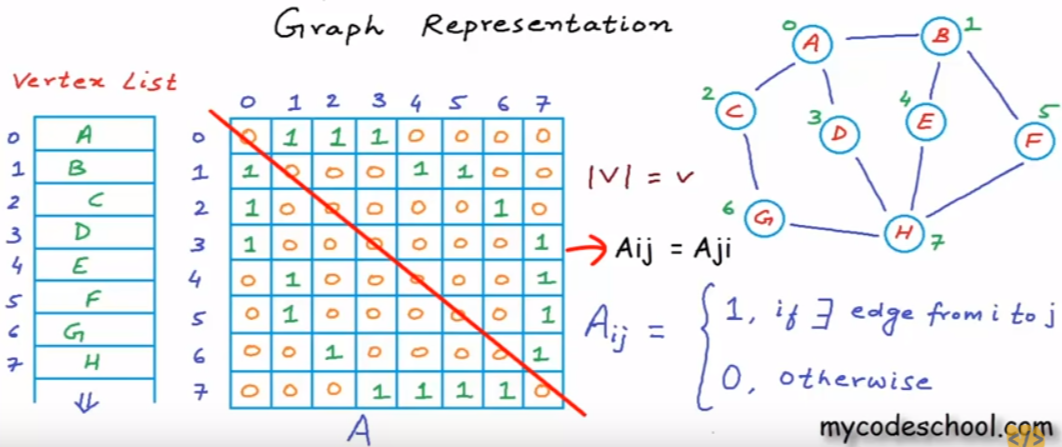 Graph Representation
Vertex List
0 A
1 B
2 C
3 D
4 E
5 F
6 G
7 H
0 1 2 3 4 5 6 7
0 0 1 1 1 0 0 0 0
1 1 0 0 0 1 1 0 0
2 1 0 0 0 0 0 1 0
3 1 0 0 0 0 0 0 1
4 0 1 0 0 0 0 0 1
5 0 1 0 0 0 0 0 1
6 0 0 1 0 0 0 0 1
7 0 0 0 1 1 1 1 0
A
|V| = v
Aij = Aji
Aij = { 1, if ∃ edge from i to j
0, otherwise
0 A
B 1
2 C
3 D
4 E
5 F
6 G
H 7
mycodeschool.com
</>